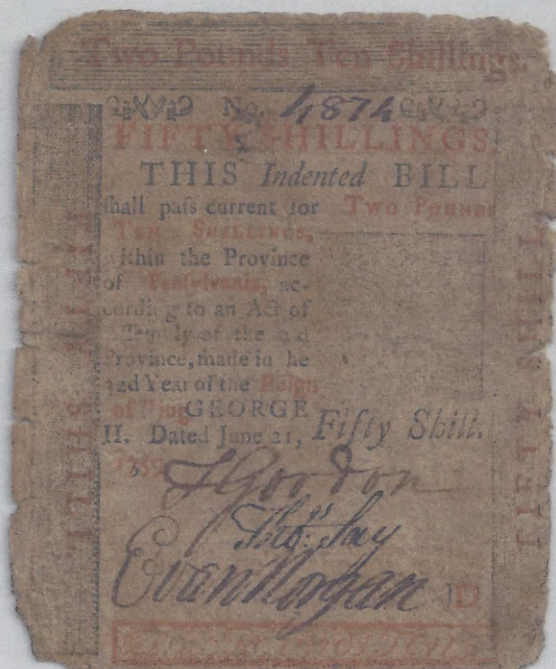 Two Pounds Ten Shillings.
No. 4874
FIFTY SHILLINGS
THIS Indented BILL
shall paſs current for Two Pounds
Ten Shillings,
within the Province
of Pensylvania, ac-
cording to an Act of
of the
Province, made in he
Year of the Reign
of King GEORGE
II. Dated June 21,
Fifty Shill.
FIFTY SHILL
FIFTY SHILL
T Gordon
Thos. Say
Evan Morgan